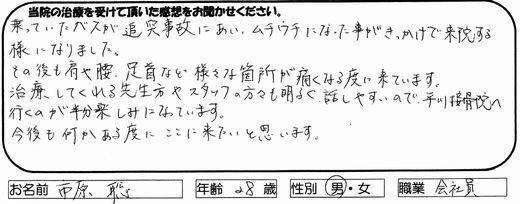 当院の治療を受けて頂いた感想をお聞かせください。
乗っていたバスが追突事故にあい、ムチウチになった事がきっかけで来院する
様になりました。
その後も肩や腰、足首など様々な箇所が痛くなる度に来ています。
治療してくれる先生方やスタッフの方々も明るく話しやすいので、平川接骨院へ
行くのが半分楽しみになっています。
今後も何かある度にここに来たいと思います。
お名前 市原 聡 年齢 28 歳 性別 男・女 職業 会社員